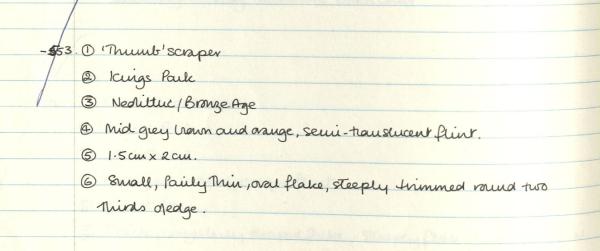 553. ① 'Thumb' scraper
② Kings Park
③ Neolithic/Bronze Age
④ Mid grey brown and orange, semi-translucent flint.
⑤ 1.5cm x 2cm.
⑥ Small, fairly thin, oval flake, steeply trimmed round two
thirds of edge.